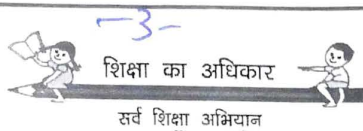 -3-
शिक्षा का अधिकार
सर्व शिक्षा अभियान